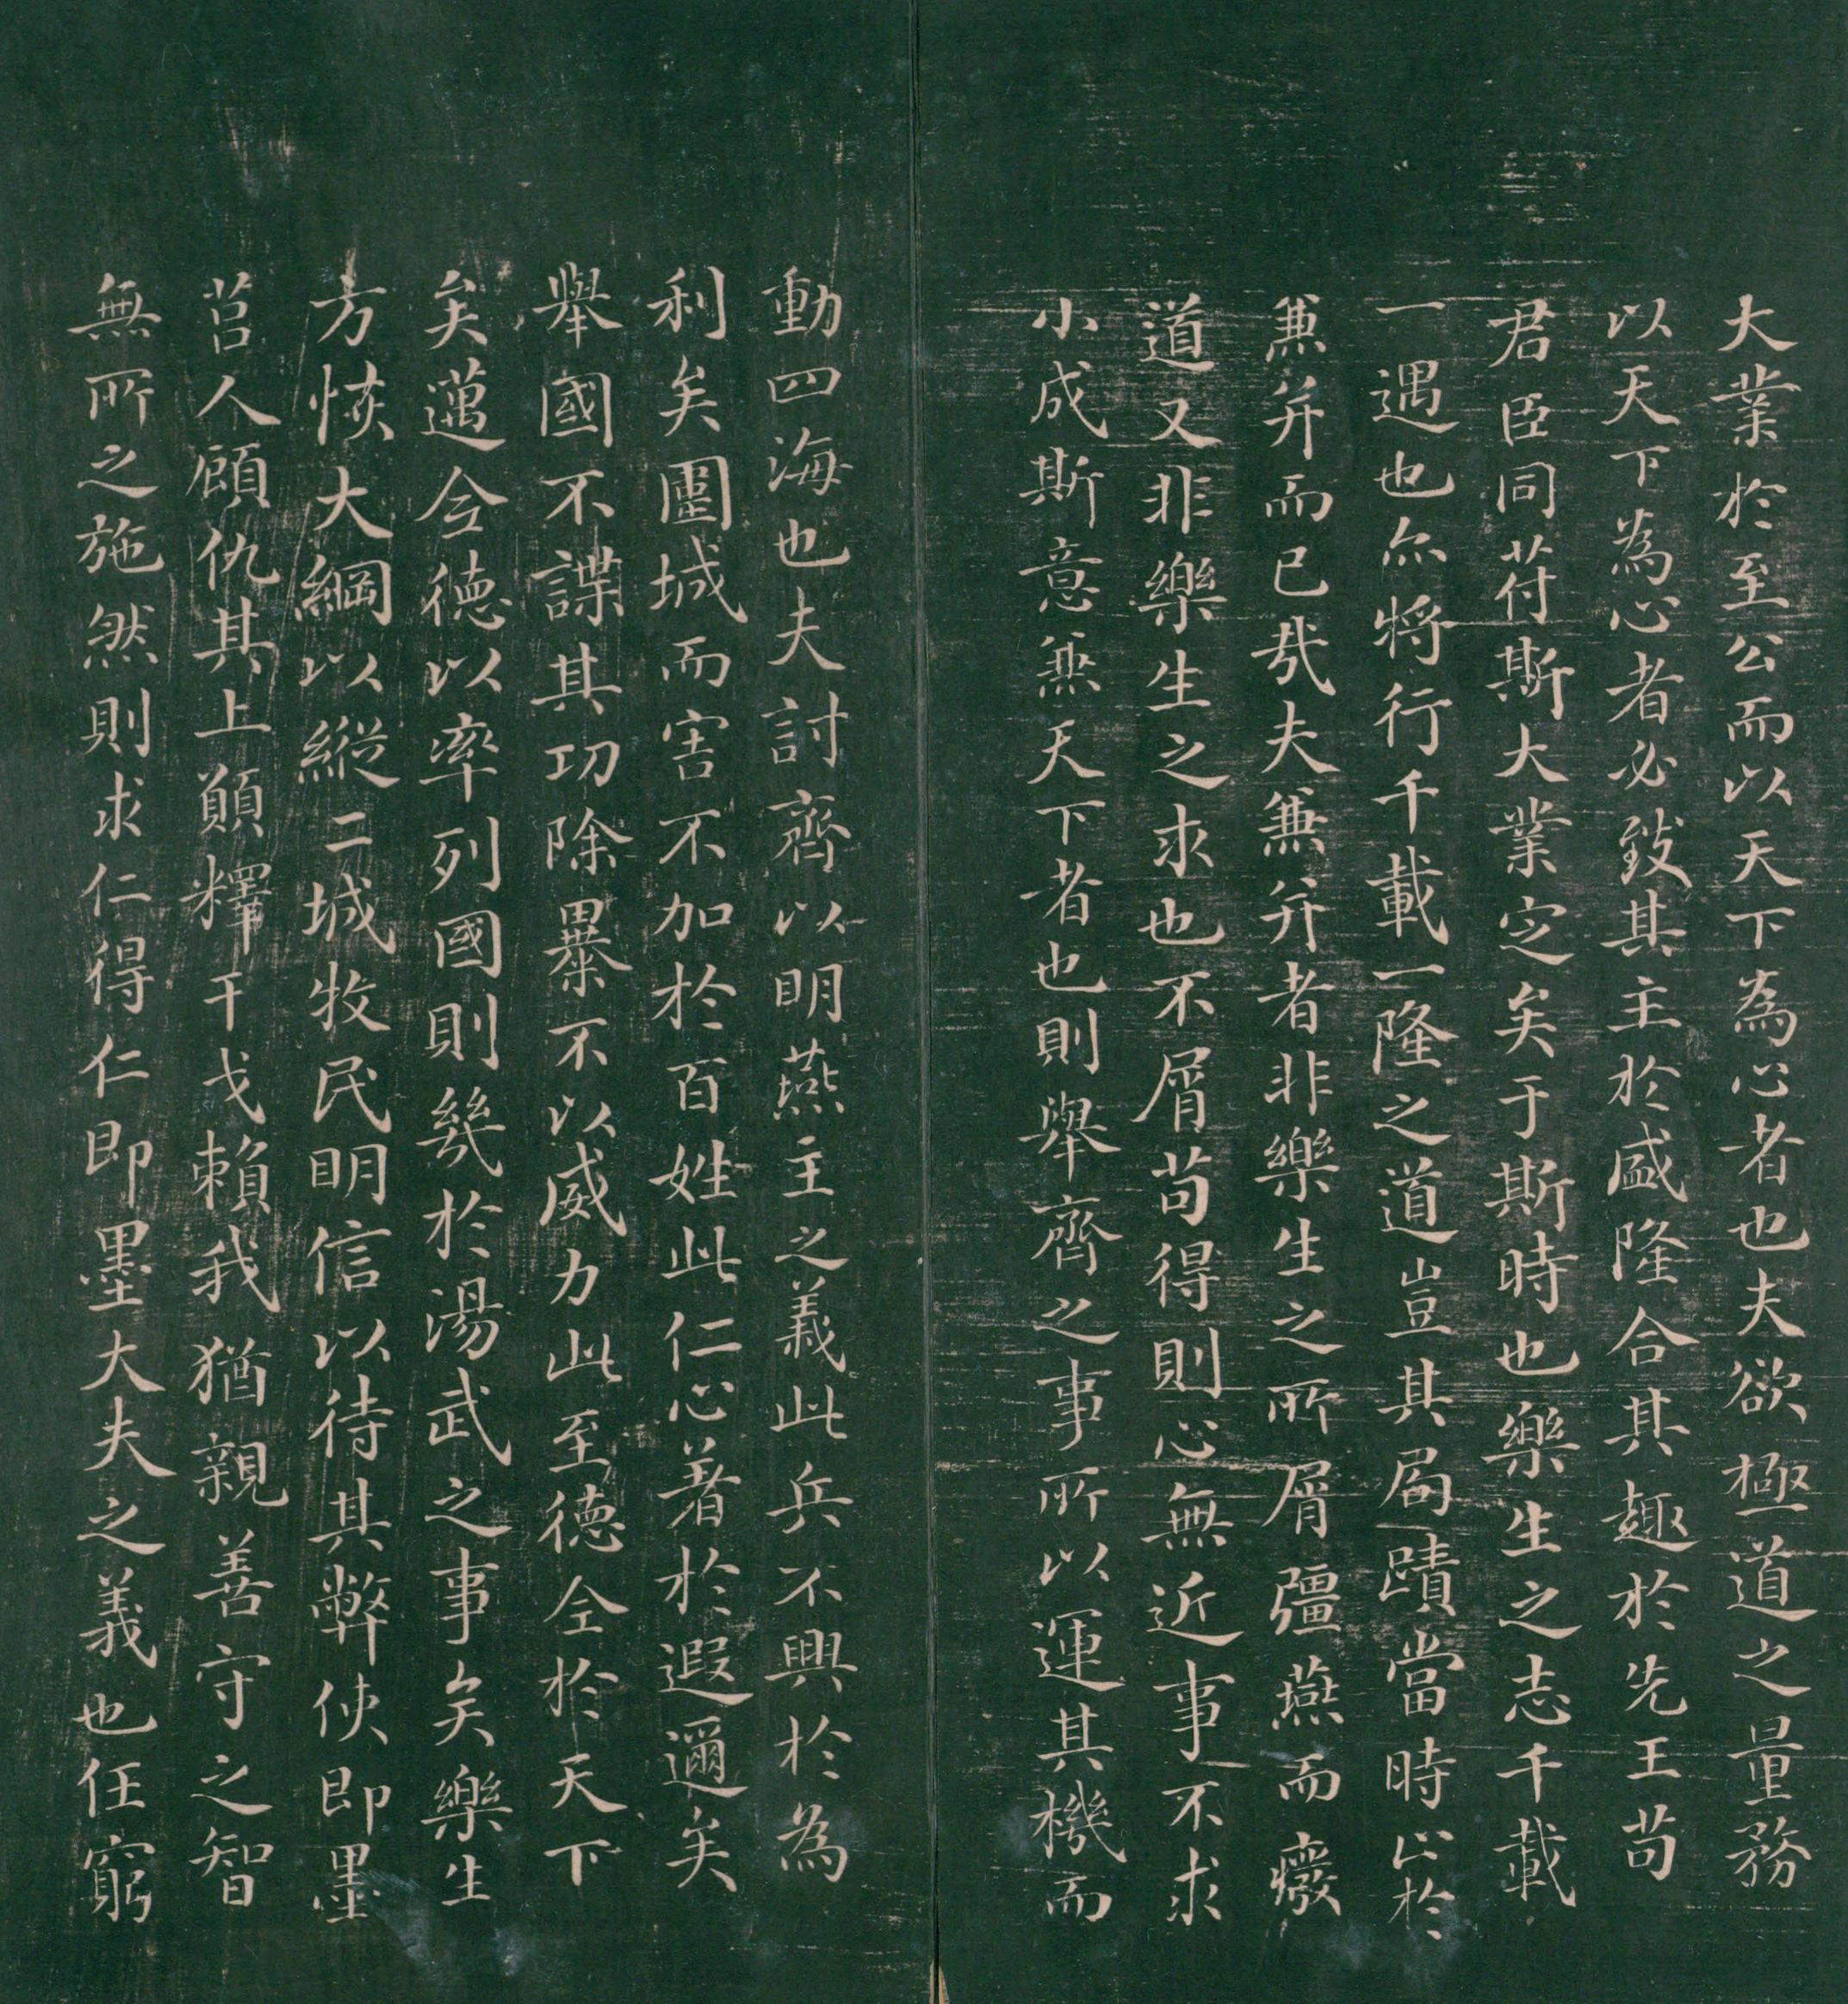 大業於至公而以天下為心者也夫欲極道之量務
以天下為心者必致其主於盛隆合其趣於先王苟
君臣同苻斯大業定矣于斯時也樂生之志千載
一遇也亦將行千載一隆之道豈其局蹟當時止於
兼并而已哉夫兼并者非樂生之所屑彊燕而癈
道又非樂生之求也不屑苟得則心無近事不求
小成斯意兼天下者也則舉齊之事所以運其機而
動四海也夫討齊以明燕主之義此兵不興於為
利矣圍城而害不加於百姓此仁心著於遐邇矣
舉國不謀其功除暴不以威力此至德全於天下
矣邁全德以率列國則幾於湯武之事矣樂生
方恢大綱以縱二城牧民明信以待其弊使即墨
莒人顧仇其上願釋干戈賴我猶親善守之智
無所之施然則求仁得仁即墨大夫之義也任窮